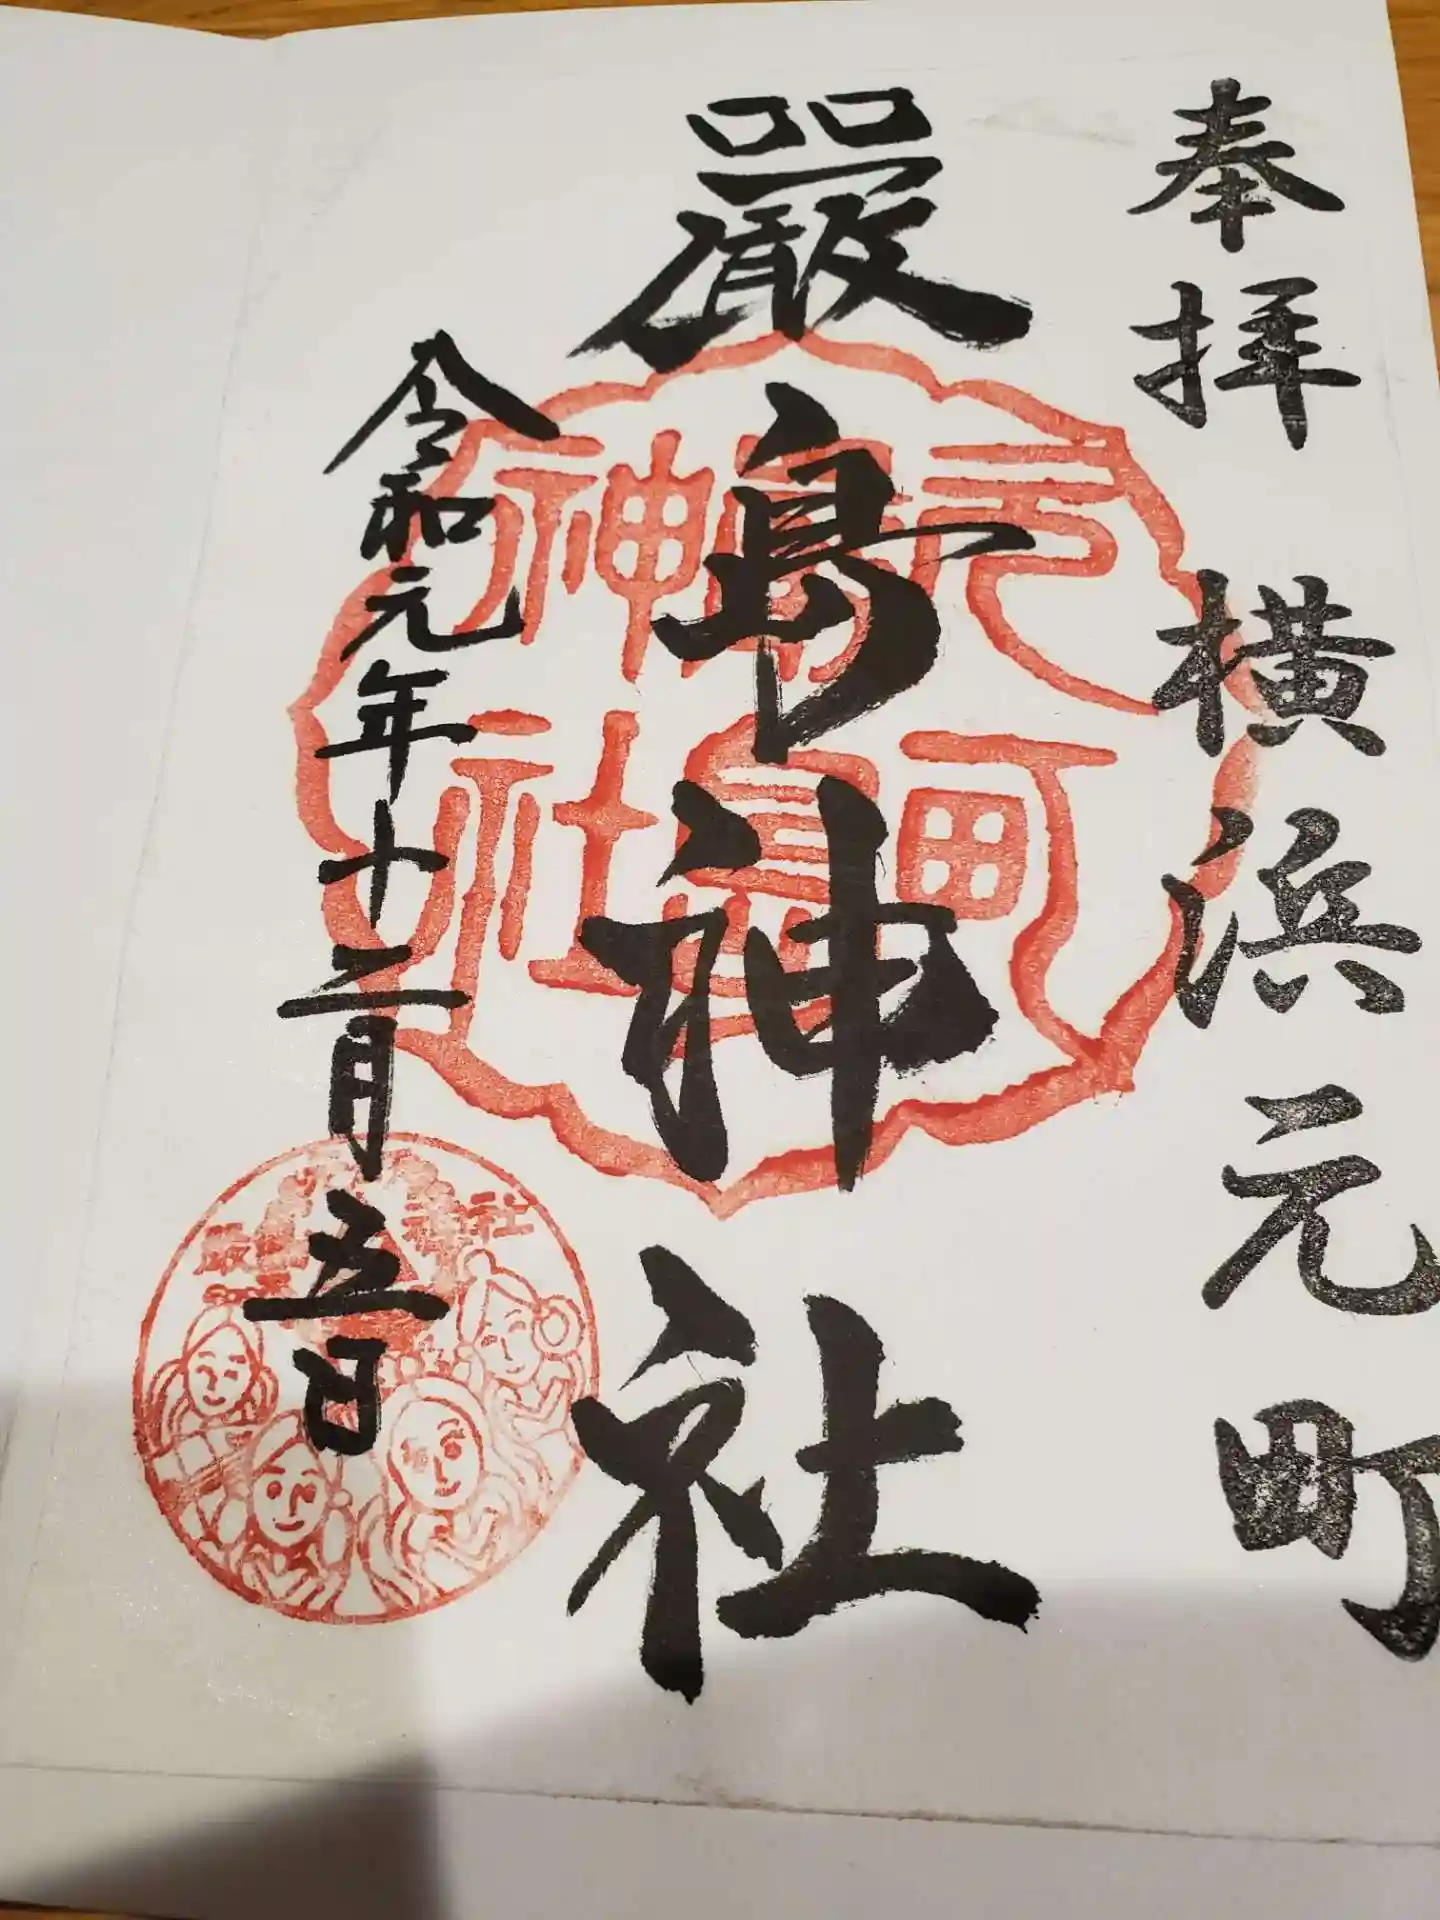 奉拝 横浜元町
嚴島神社
令和元年十二月五日
元町
嚴島
神社
厳島神社